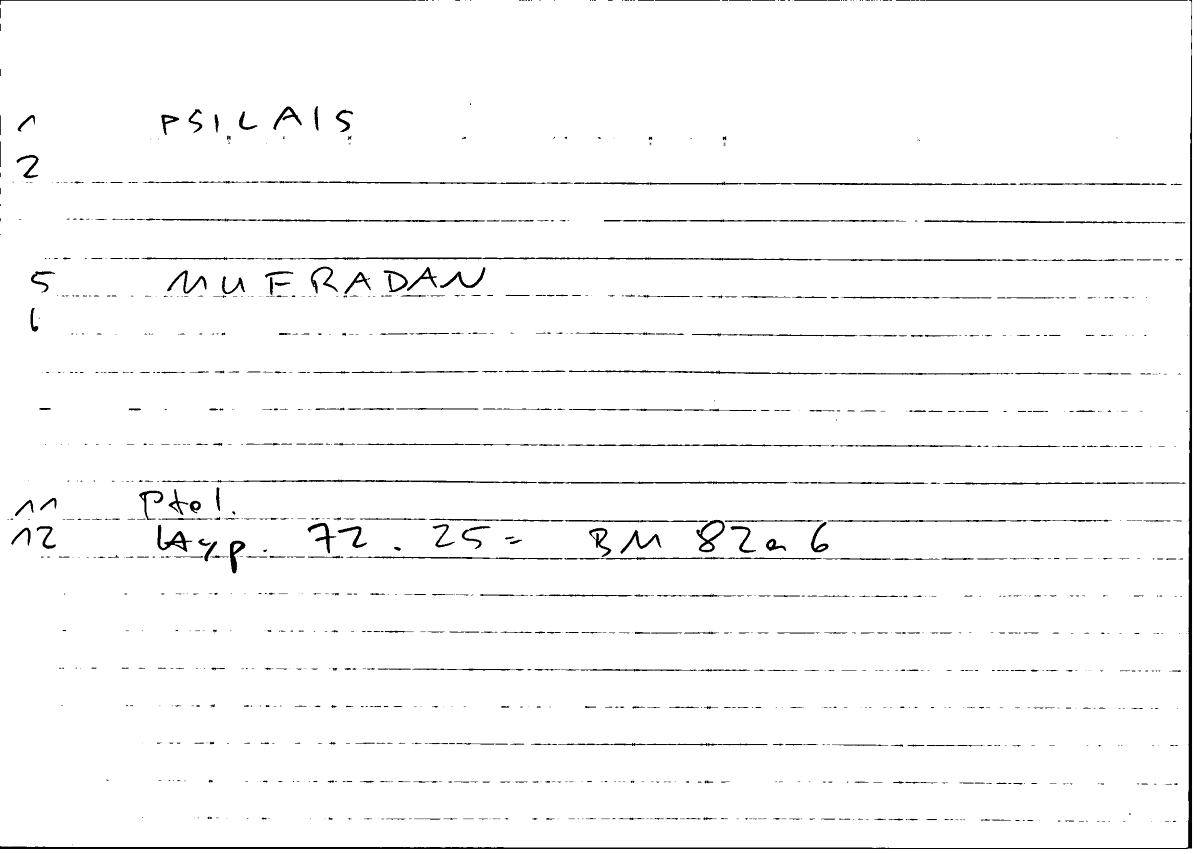 1 PSILAIS
2
5 MUFRADAN
6
11 Ptol.
12 Hyp. 72.25= BM 82a6